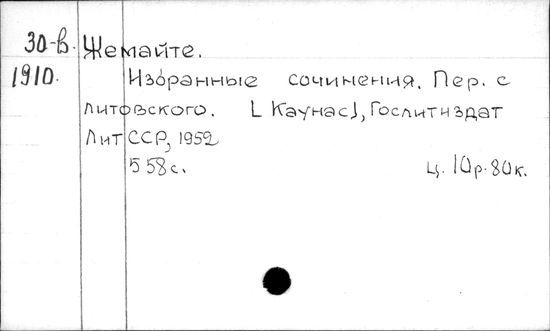 30-в. Жемайте.
1910. Избранные сочинения. Пер. с
литовского. [Каунас], Гослитиздат
Лит ССР, 1952
558с. ц. 10р. 80к.